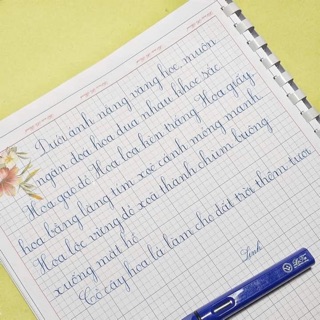 Dưới ánh nắng vàng học, muôn
ngàn đoá hoa đua nhau khoe sắc.
Hoa gạo đỏ. Hoa loa kèn trắng. Hoa giấy,
hoa bằng lăng tím xoè cánh mỏng manh.
Hoa lộc vừng đỏ xoã thành chùm buông
xuống mặt hồ.
Cỏ cây hoa lá làm cho đất trời thêm tươi
Linh